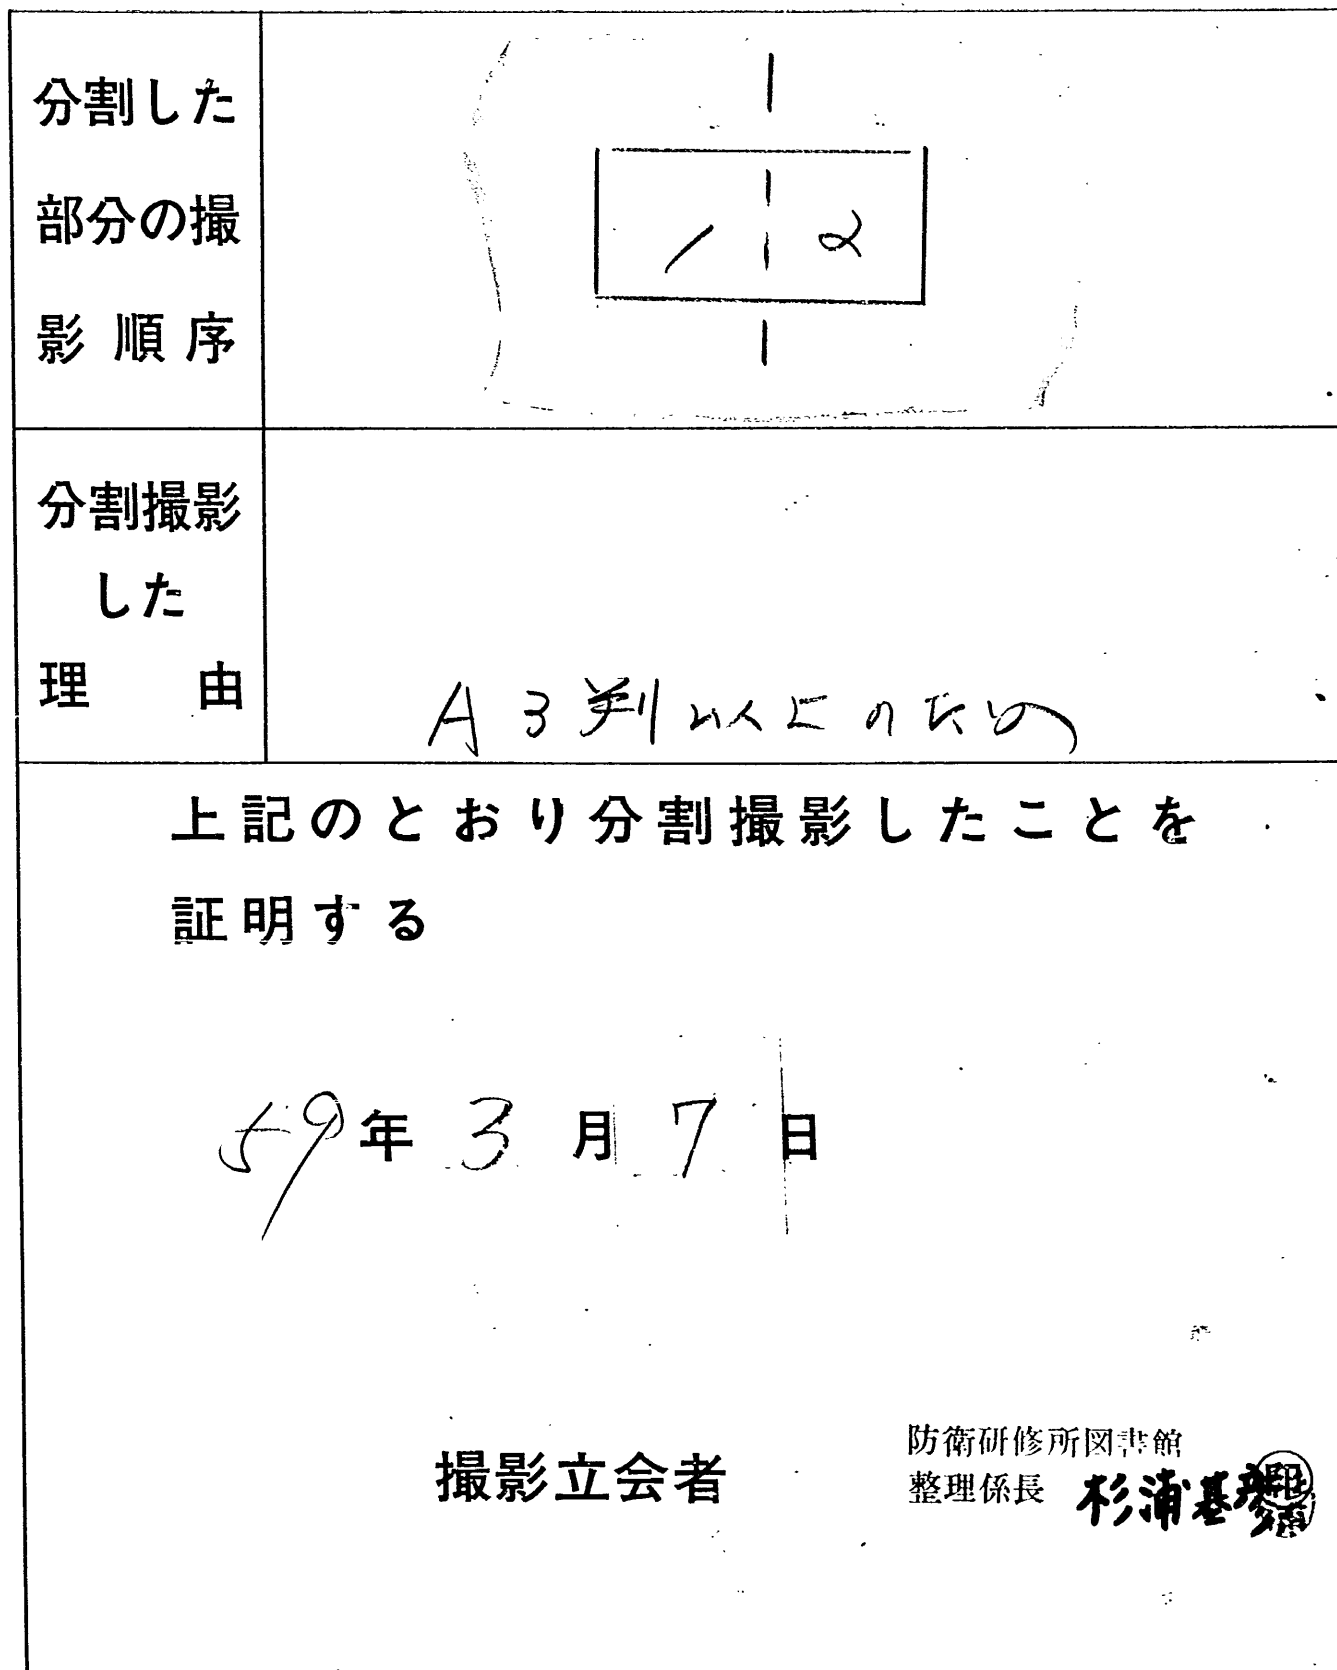 分割した
部分の撮
影順序
1 2
分割撮影
した
理由
A3判以上のため
上記のとおり分割撮影したことを
証明する
59年3月7日
撮影立会者
防衛研修所図書館
整理係長 杉浦基